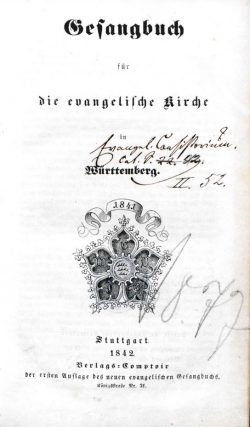 Gesangbuch
für
die evangelische Kirche
in
Evangel. Consistorium.
Cat. P.
Württemberg.
II. 52.
1841
Stuttgart.
1842.
Verlags-Comptoir
der ersten Auflage des neuen evangelischen Gesangbuchs.
Königsstraße Nr. 31.